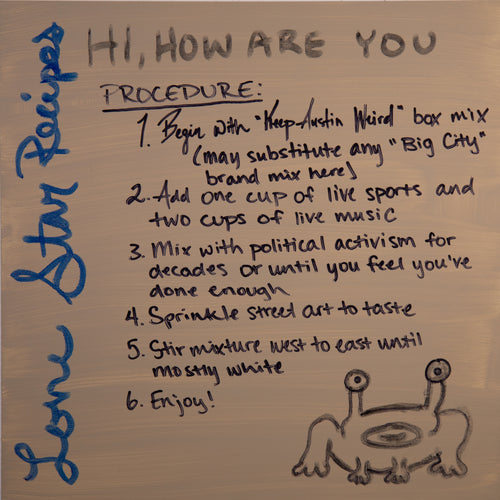 Lone Star Recipes
HI, HOW ARE YOU
PROCEDURE:
1. Begin with "Keep Austin Weird" box mix
(may substitute any "Big City"
brand mix here)
2. Add one cup of live sports and
two cups of live music
3. Mix with political activism for
decades or until you feel you've
done enough
4. Sprinkle street art to taste
5. Stir mixture west to east until
mostly white
6. Enjoy!